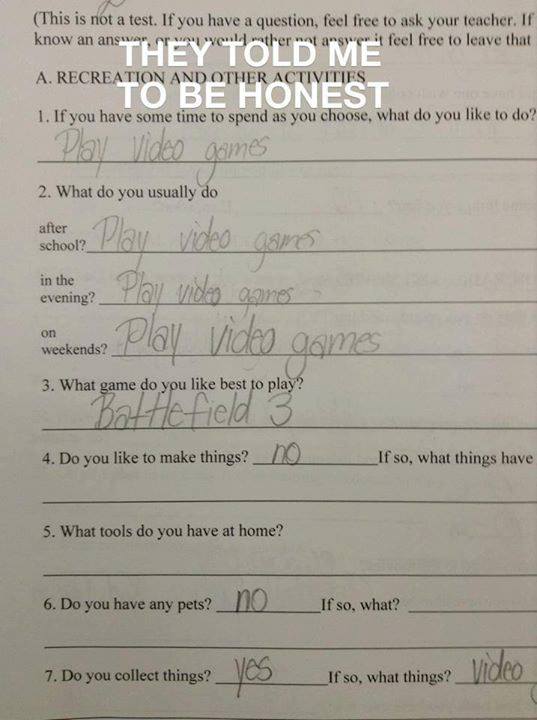 (This is not a test. If you have a question, feel free to ask your teacher. If
know an answer, or you would rather not answer it feel free to leave that
THEY TOLD ME
TO BE HONEST
A. RECREATION AND OTHER ACTIVITIES
1. If you have some time to spend as you choose, what do you like to do?
Play video games
2. What do you usually do
after
school? Play video games
in the
evening? Play video games
on
weekends? Play video games
3. What game do you like best to play?
Battlefield 3
4. Do you like to make things? no If so, what things have
5. What tools do you have at home?
6. Do you have any pets? no If so, what?
7. Do you collect things? yes If so, what things? video